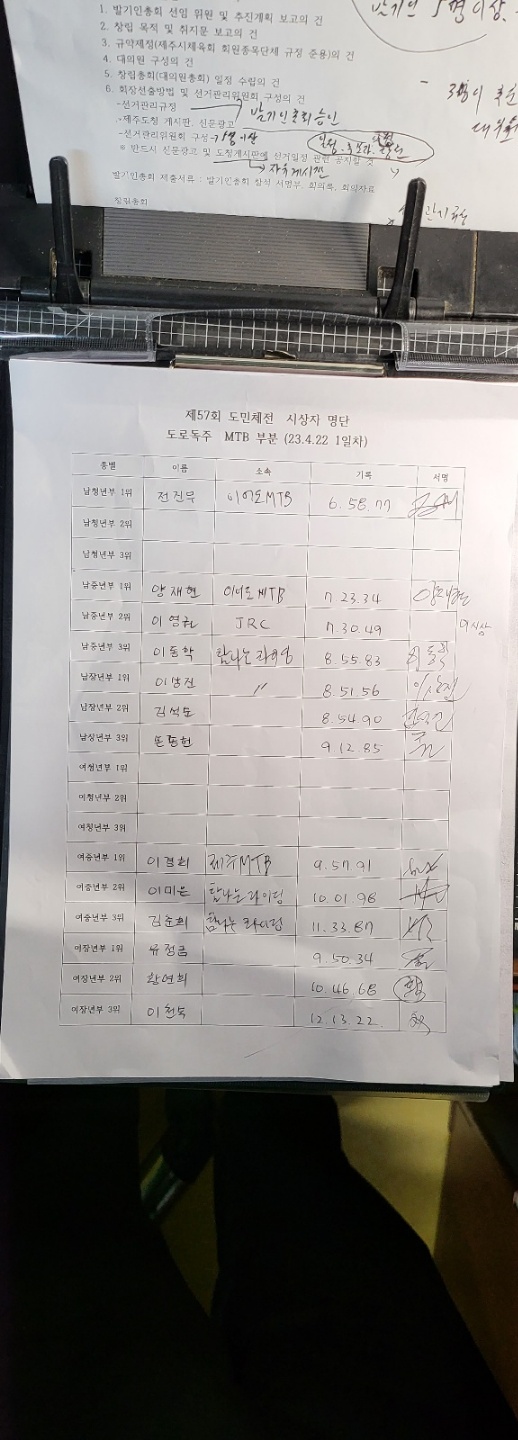 1. 발기인총회 선임 위원 및 추진계획 보고의 건
2. 창립 목적 및 취지문 보고의 건
3. 규약제정(제주시체육회 회원종목단체 규정 준용)의 건
4. 대의원 구성의 건
5. 창립총회(대의원총회) 일정 수립의 건
6. 회장선출방법 및 선거관리위원회 구성의 건
-선거관리규정 → 발기인총회승인
*제주도청 게시판, 신문광고
-선거관리위원회 구성 → 5명이상
※ 반드시 신문광고 및 도청게시판에 선거일정 관련 공지할 것
→ 자유게시판
발기인총회 제출서류 : 발기인총회 참석 서명부, 회의록, 회의자료
창립총회
발기인 5명이상
- 3명이
제57회 도민체전 시상자 명단
도로독주 MTB 부분 (23.4.22 1일차)
종별 이름 소속 기록 서명
남청년부 1위 전진우 이어도MTB 6.58.77
남청년부 2위
남청년부 3위
남중년부 1위 양재현 이어도MTB 7.23.34 양재현
남중년부 2위 이영권 JRC 7.30.49 미시상
남중년부 3위 이동학 탐나는라이딩 8.55.83 이동학
남장년부 1위 이상진 〃 8.51.56 이상진
남장년부 2위 김석도 8.54.90
남장년부 3위 손동헌 9.12.85
여청년부 1위
여청년부 2위
여청년부 3위
여중년부 1위 이경희 제주MTB 9.57.91
여중년부 2위 이미은 탐나는라이딩 10.01.98
여중년부 3위 김순희 탐나는라이딩 11.33.87
여장년부 1위 유정금 9.50.34
여장년부 2위 황연희 10.46.68
여장년부 3위 이현숙 12.13.22